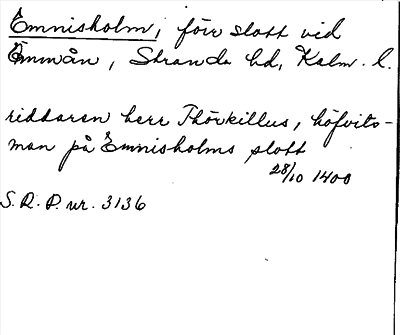 Emnisholm, förr slott vid
Emmån, Stranda hd, Kalm. l.
riddaren herr Thörkillus, höfvits-
man på Emnisholms slott
28/10 1400
S.R.P. nr. 3136